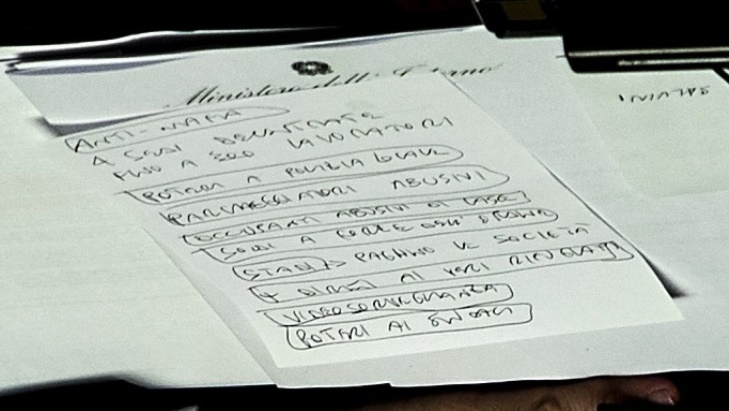 Ministero dell'Interno
ANTI-MAFIA
4 SEDI DECENTRATE
FINO A 250 LAVORATORI
POTERI A POLIZIA LOCALE
PARCHEGGIATORI ABUSIVI
OCCUPANTI ABUSIVI DI CASE
SOLDI A FORZE DELL'ORDINE
STADI > PAGANO LE SOCIETÀ
+ DIRITTI AI VERI RIFUGIATI
VIDEOSORVEGLIANZA
POTERI AI SINDACI